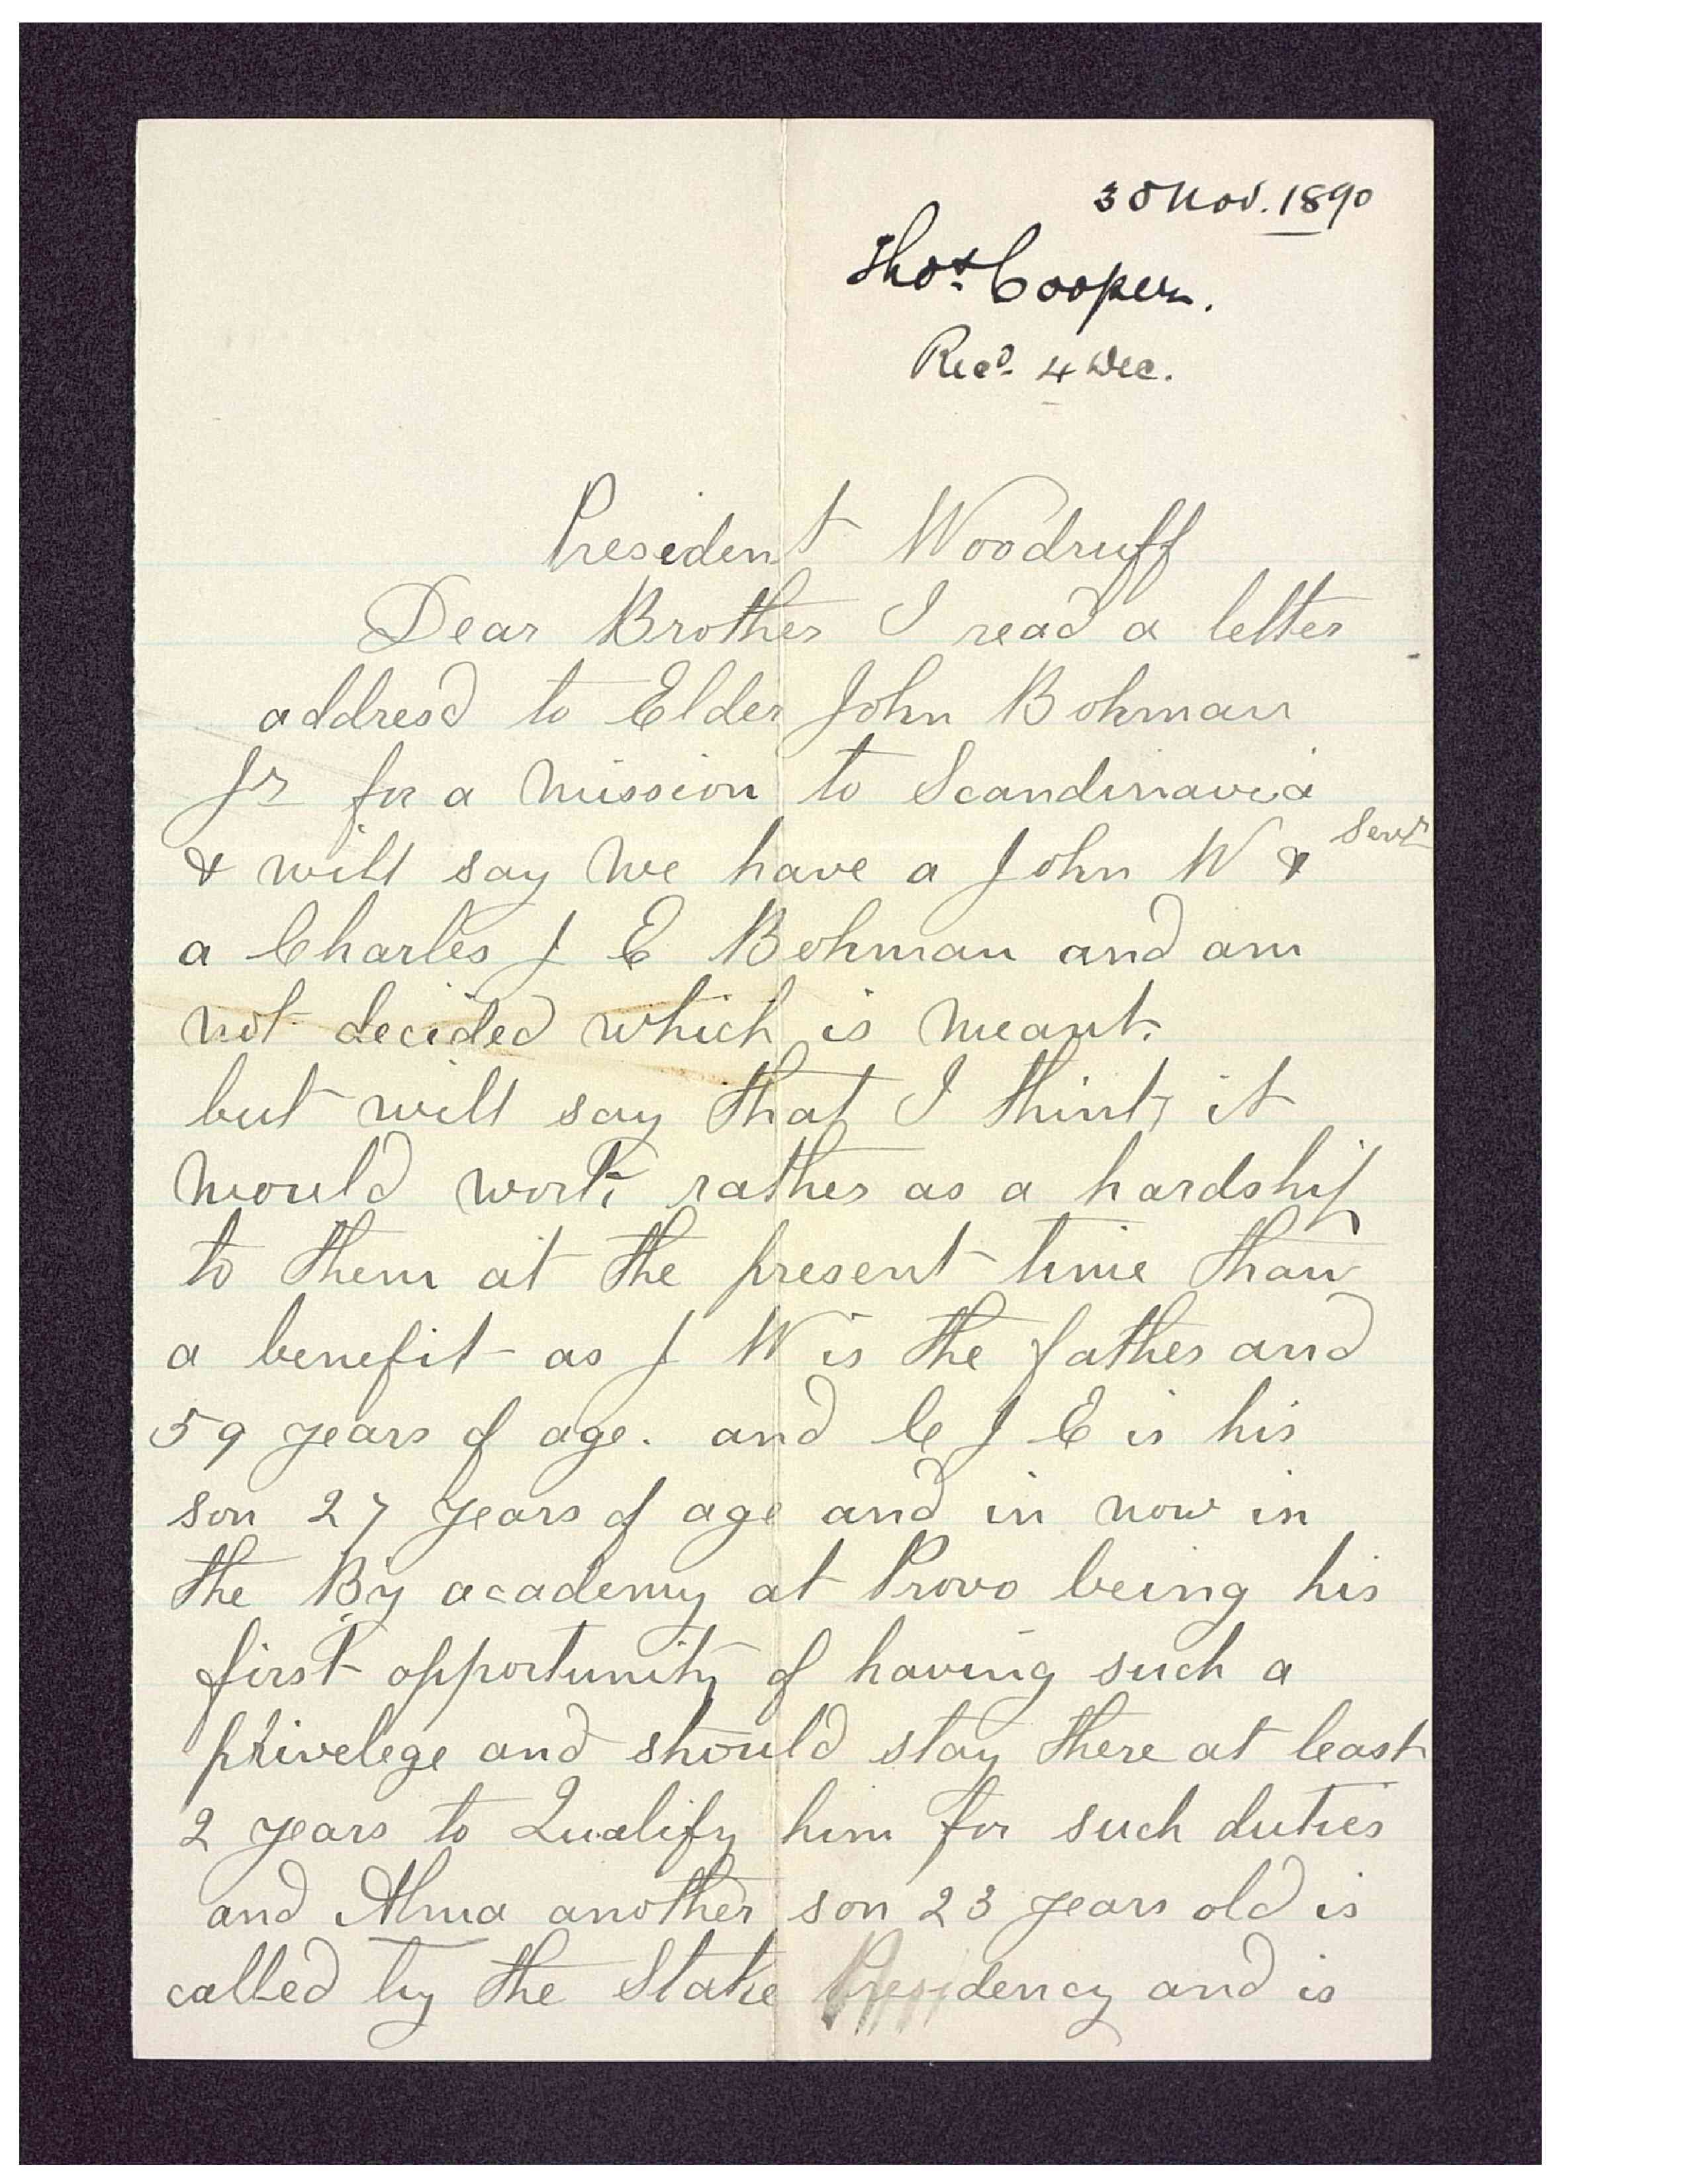 30 Nov. 1890
Thos. Cooper.
Recd. 4 Dec.
President Woodruff
Dear Brother I read a letter
addresd to Elder John Bohman
Jr for a mission to Scandinavia
& will say we have a John W & Senr
a Charles J E Bohman and am
not decided which is meant.
but will say that I think it
would work rather as a hardship
to them at the present time than
a benefit as J W is the father and
59 years of age. and C J E is his
son 27 years of age and in now in
the By academy at Provo being his
first opportunity of having such a
privelege and should stay there at least
2 years to Qualify him for such duties
and Alma another son 23 years old is
called by the Stake Presidency and is